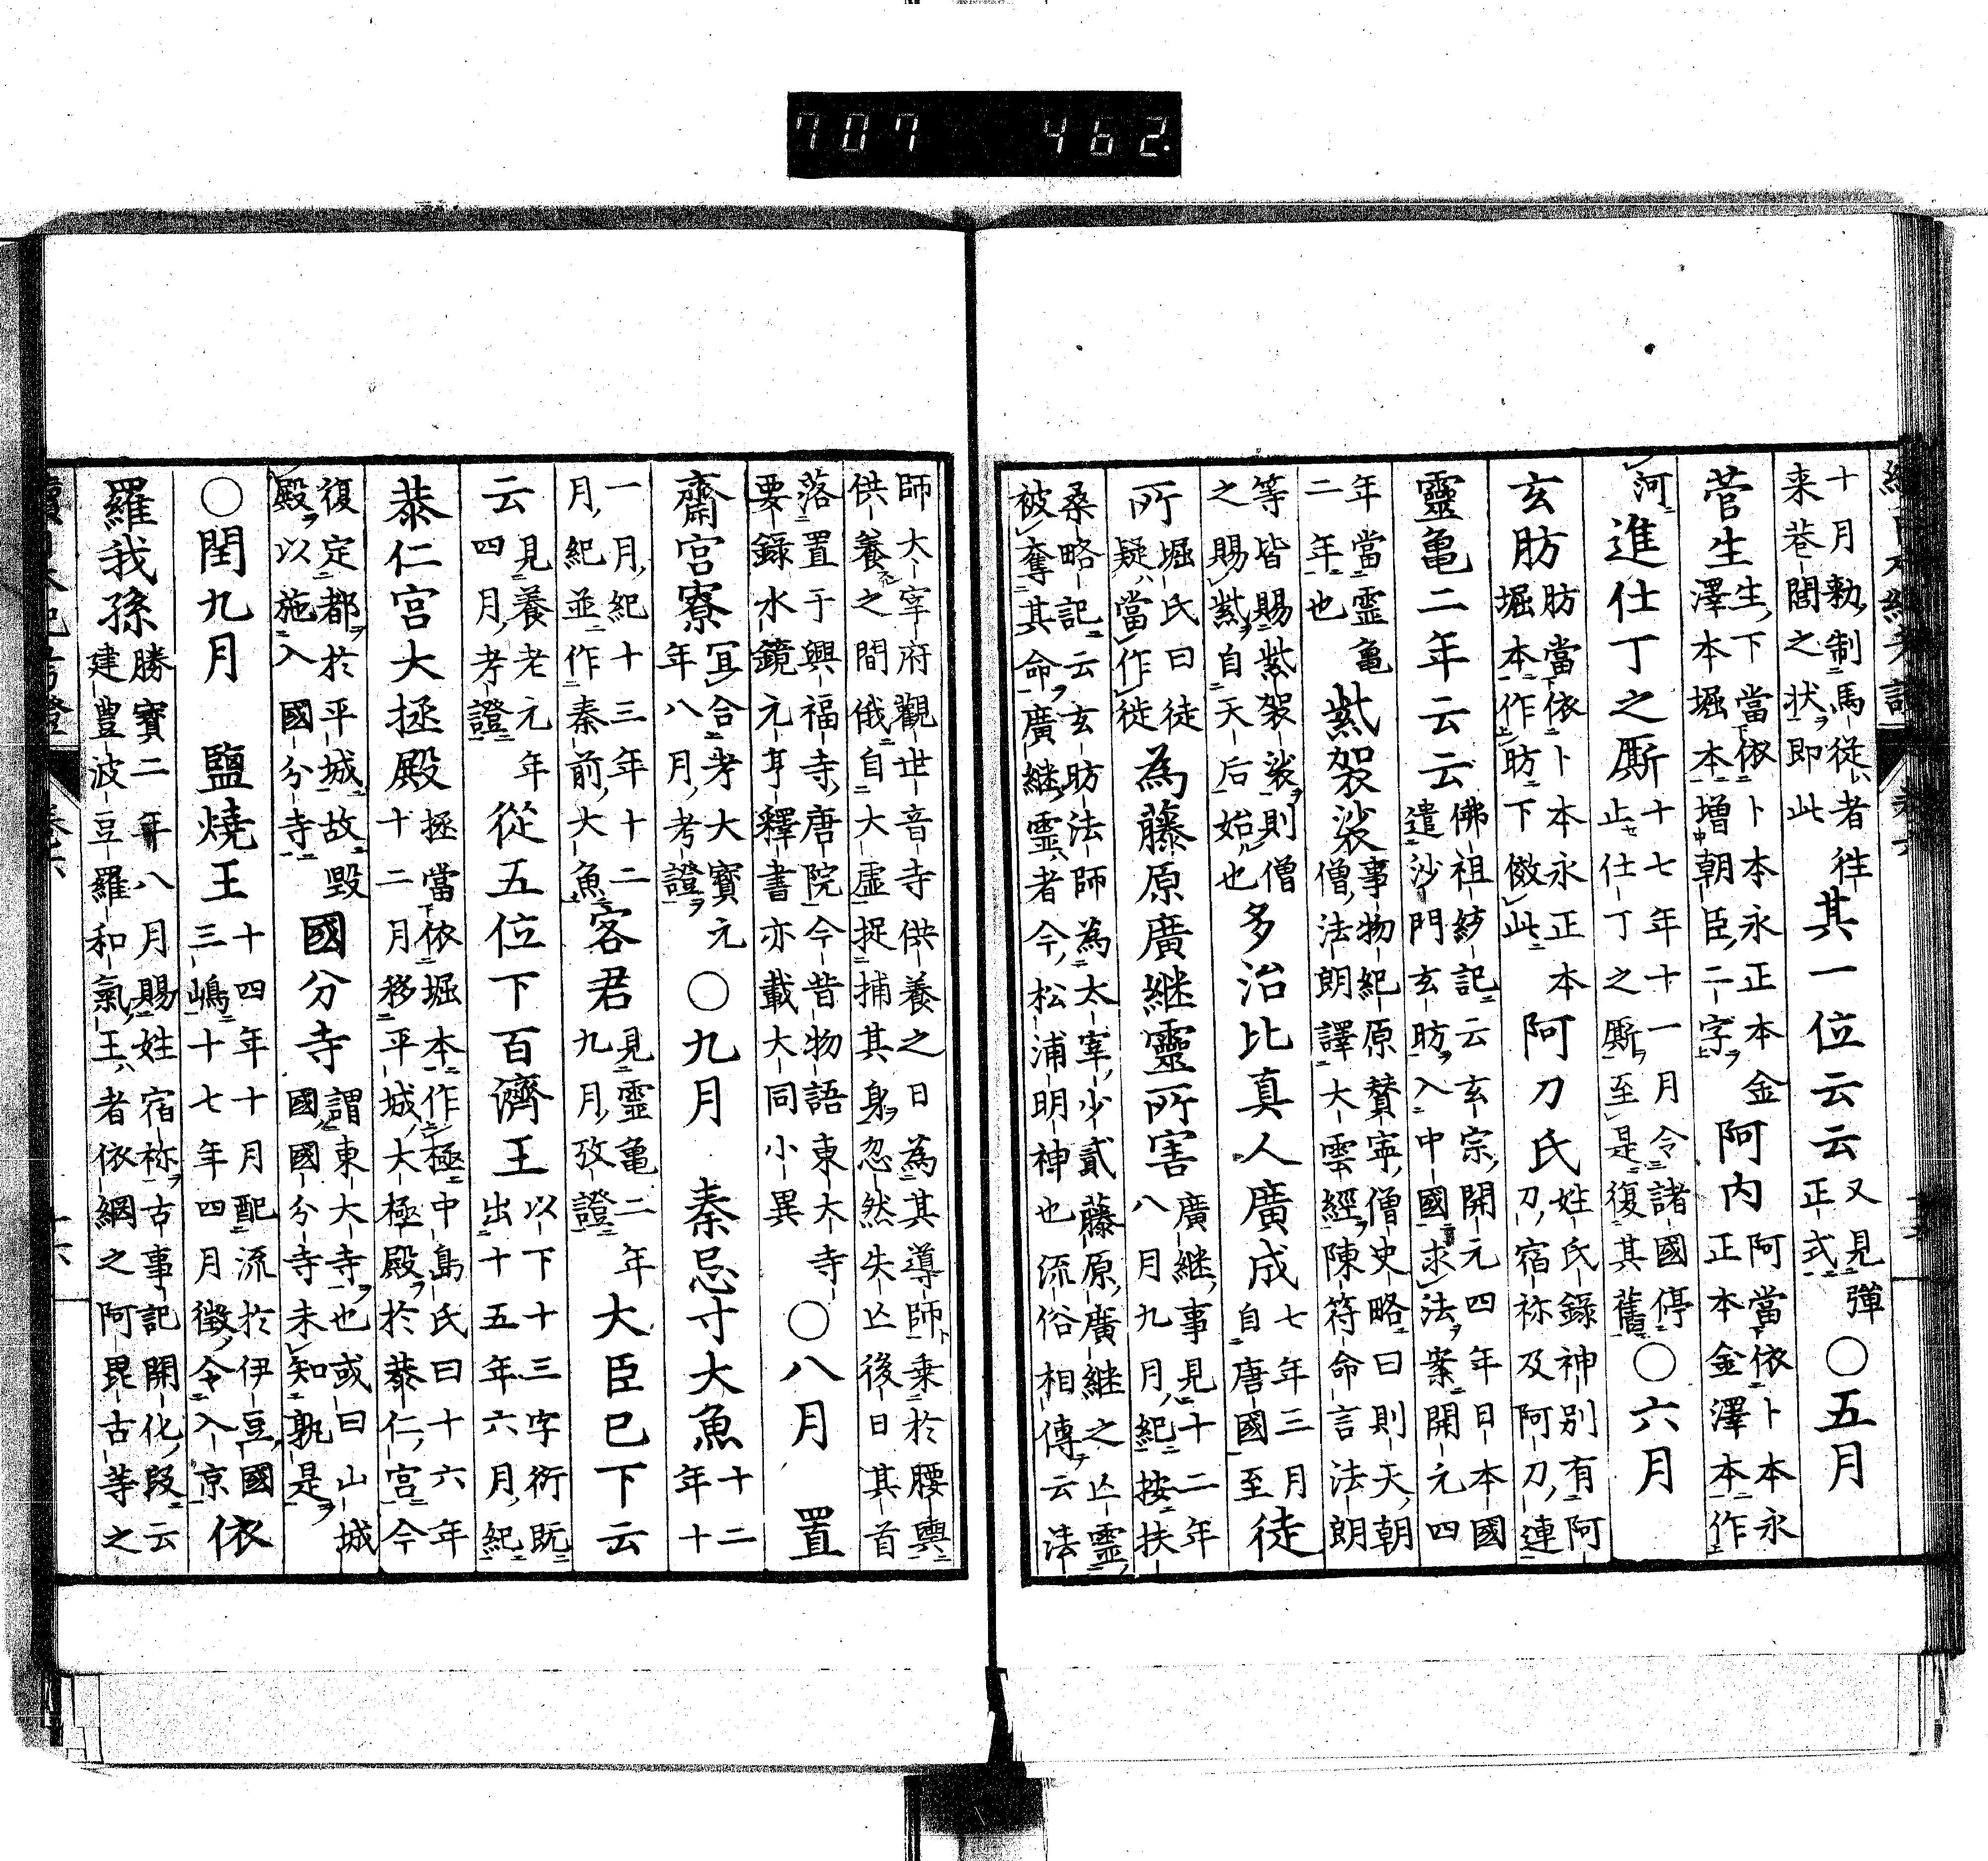 十月勅制馬從者徃
来巷閭之状即此
其一位云云
又見彈
正式
○五月
菅生
生下當依卜本永正本金
澤本堀本増朝臣二字
阿内
阿當依卜本永
正本金澤本作
河
進仕丁之厮
十七年十一月令諸國停
止仕丁之厮至是復其舊
○六月
玄肪
肪當依卜本永正本
堀本作昉下倣此
阿刀氏
姓氏錄神別有阿
刀宿祢及阿刀連
靈亀二年云云
佛祖綂記云玄宗開元四年日本國
遣沙門玄昉入中國求法案開元四
年當靈亀
二年也
紫袈裟
事物紀原賛寧僧史略曰則天朝
僧法朗譯大雲經陳符命言法朗
等皆賜紫袈裟則僧
之賜紫自天后始也
多治比真人廣成
七年三月
自唐國至
徒
所
堀氏曰徒
疑當作徙
為藤原廣継靈所害
廣継事見十二年
八月九月紀按扶
桑略記云玄昉法師為太宰少貳藤原廣継之亡靈
被奪其命廣継靈者今松浦明神也流俗相傳云法
師大宰府觀世音寺供養之日為其導師乗於腰輿
供養之間俄自大虚捉捕其身忽然失亡後日其首
落置于興福寺唐院今昔物語東大寺
要錄水鏡元亨釋書亦載大同小異
○八月
置
齋宮寮
冝合考大寶元
年八月考證
○九月
秦忌寸大魚
十二
年十
一月紀十三年十二
月紀並作秦前大魚
客君
見靈亀二年
九月攷證
大臣巳下云
云
見養老元年
四月考證
從五位下百濟王
以下十三字衍既
出十五年六月紀
恭仁宮大拯殿
拯當依堀本作極中島氏曰十六年
十二月移平城大極殿於恭仁宮今
復定都於平城故毀
殿以施入國分寺
國分寺
謂東大寺也或曰山城
國國分寺未知孰是
○閏九月
鹽燒王
十四年十月配流於伊豆國
三嶋十七年四月徵令入京
依
羅我孫
勝寶二年八月賜姓宿祢古事記開化段云
建豊波豆羅和氣王者依網之阿毘古等之